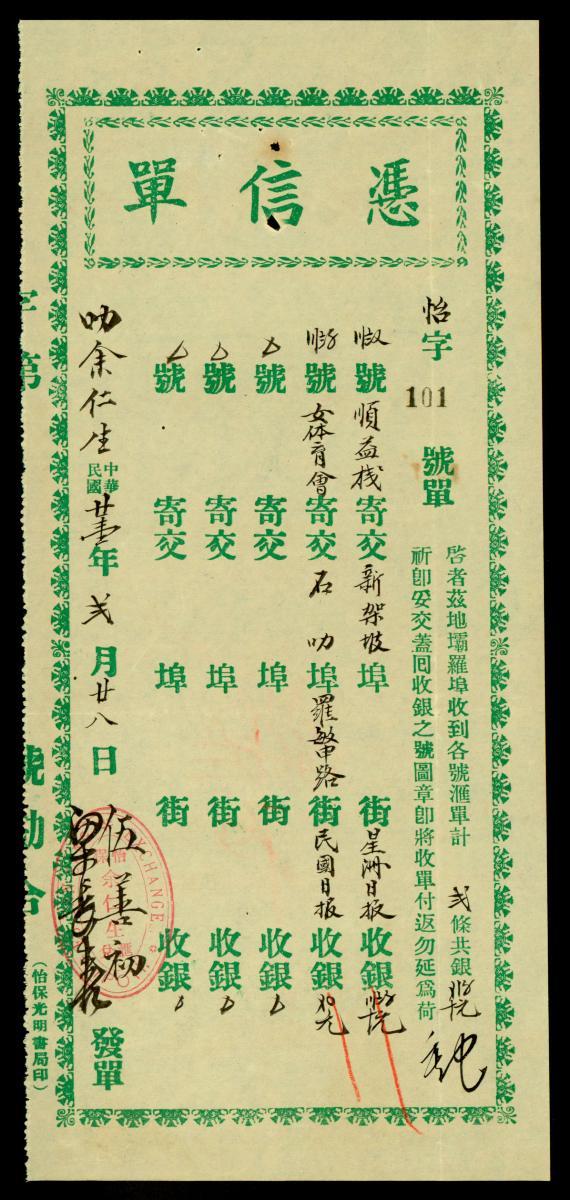 憑信單
怡字 101 號單
啓者茲地壩羅埠收到各號滙單計 弍 條共銀
祈卽妥交蓋囘收銀之號圖章卽將收單付返勿延爲荷
號 順益棧 寄交 新架坡 埠 街 星洲日报 收銀
號 女体育會 寄交 石叻 埠 羅敏申路 街 民國日报 收銀
號 寄交 埠 街 收銀
號 寄交 埠 街 收銀
號 寄交 埠 街 收銀
叻余仁生 中華民國 年 弍 月 廿八 日 伍善初 發單
余仁生
EXCHANGE
字第 號勘合
(怡保光明書局印)